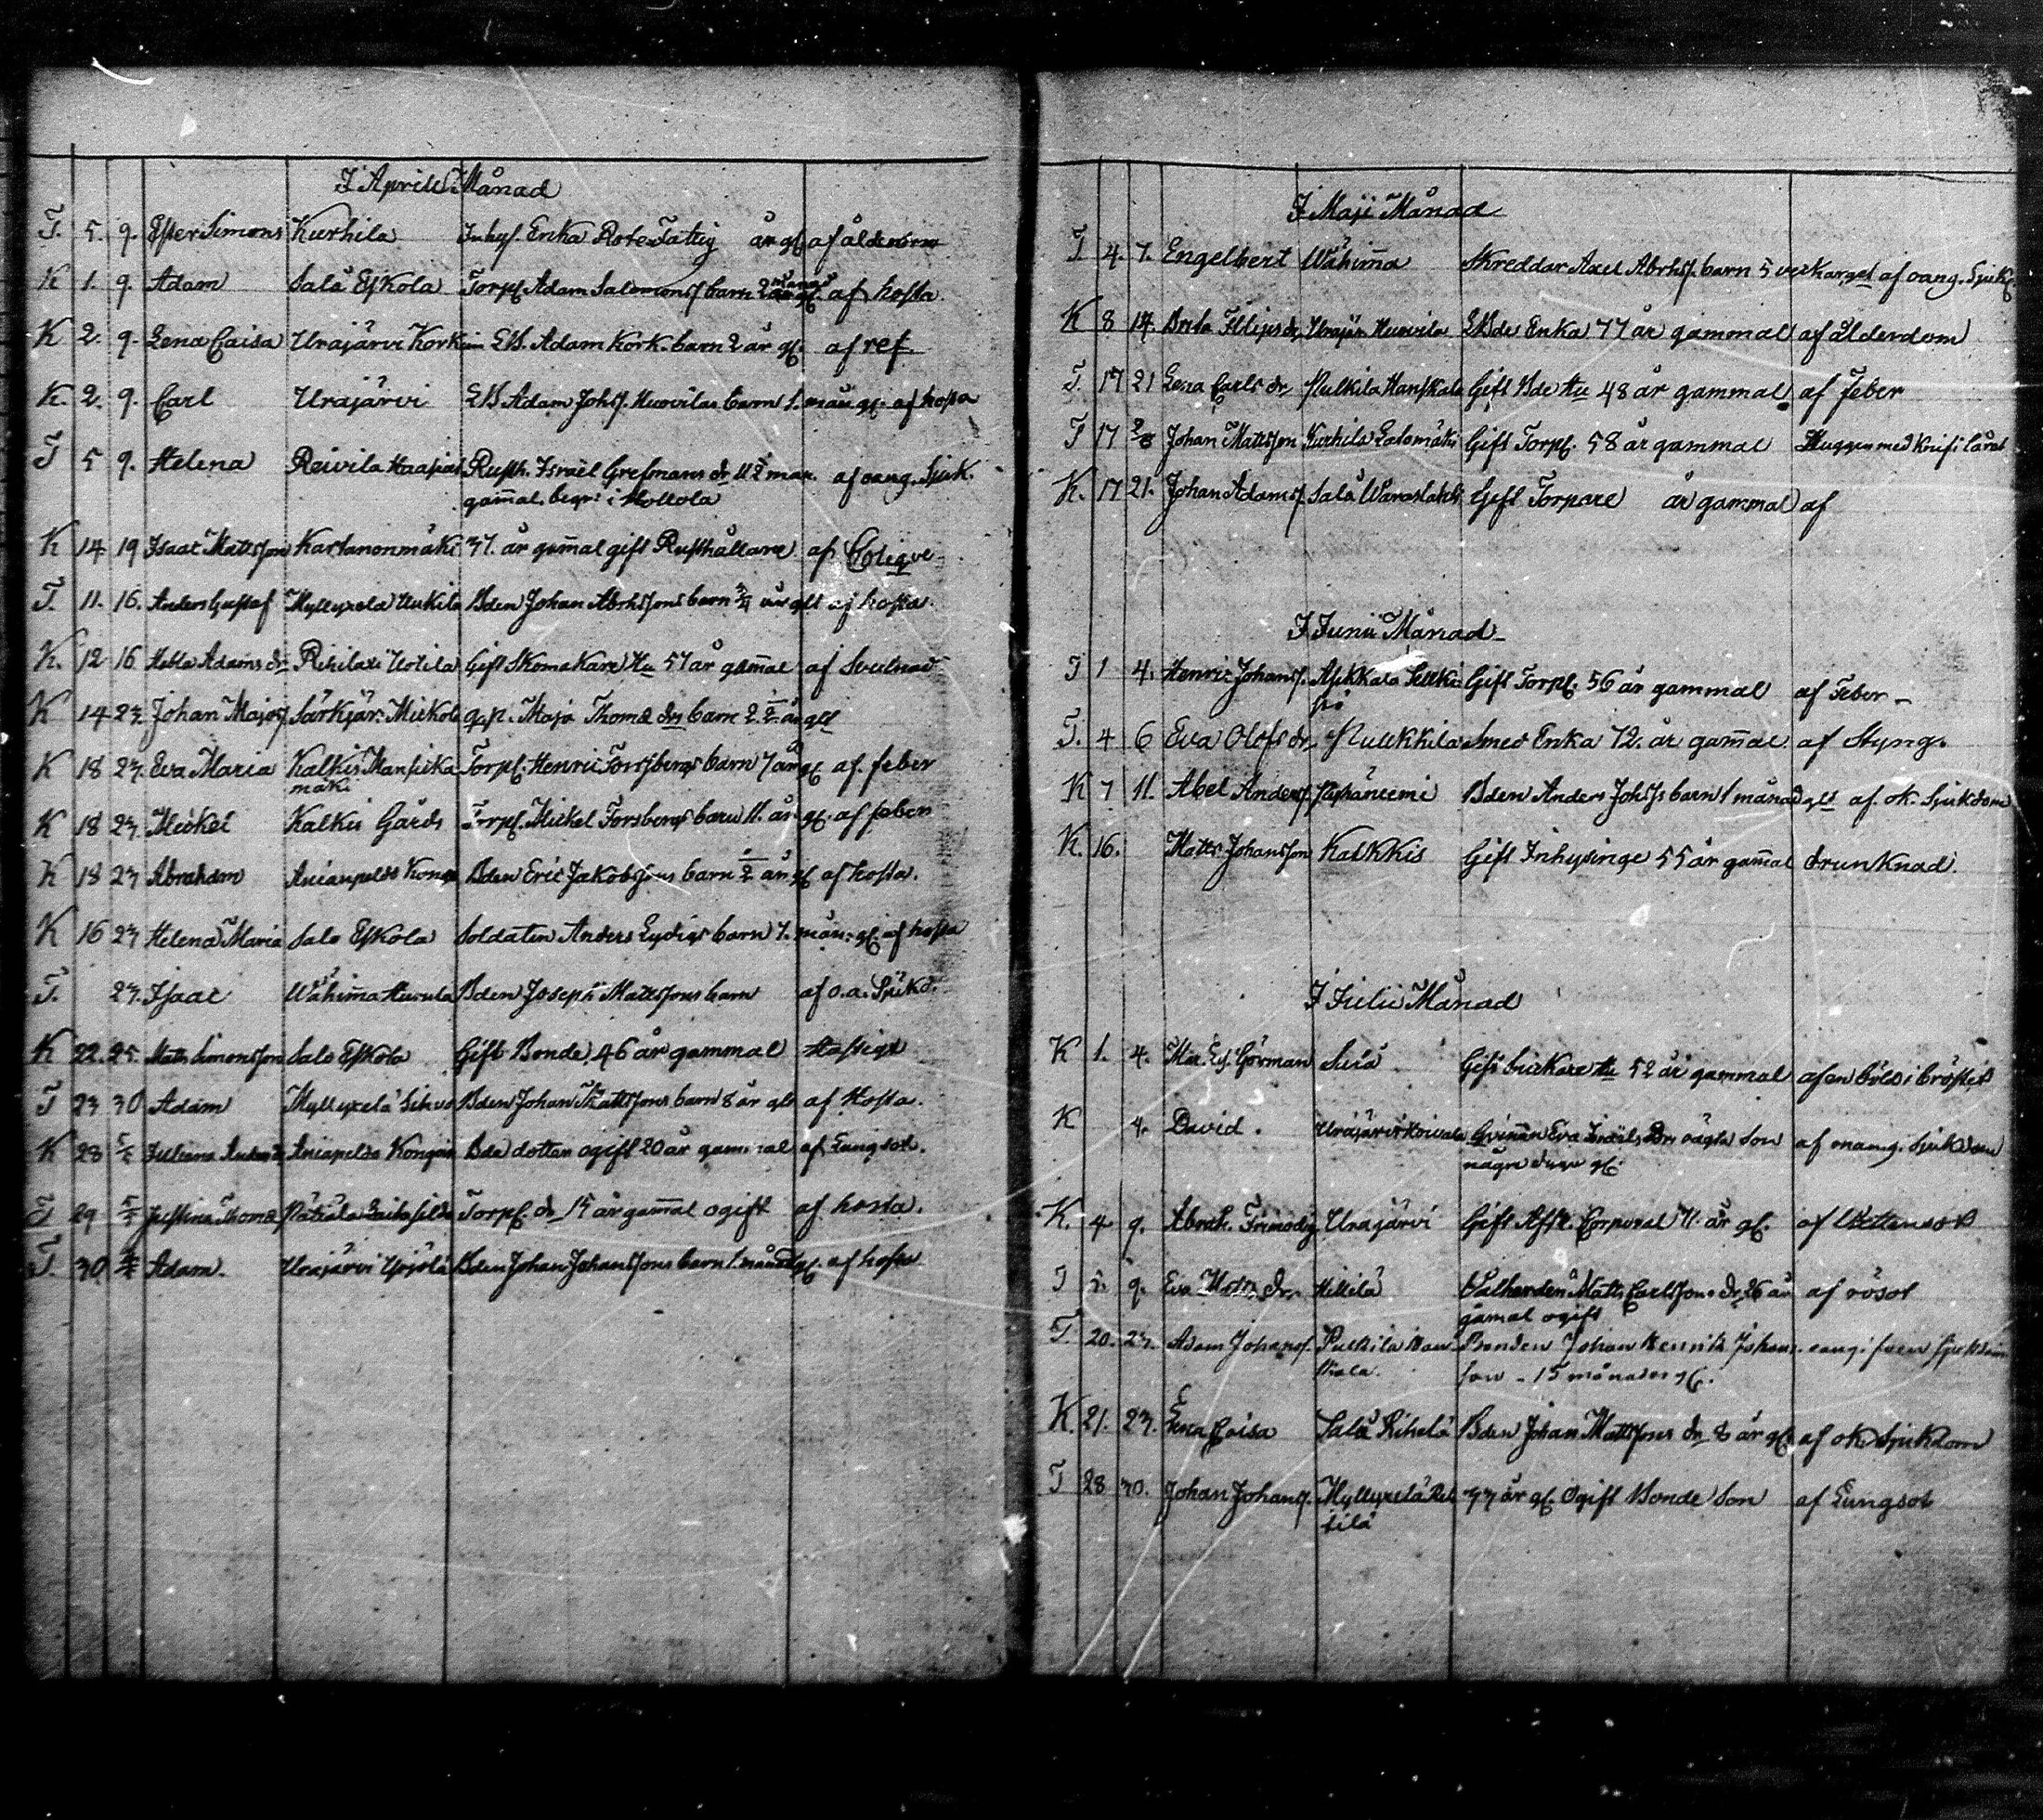 I Aprill Månad
T. 5. 9. Ester Simons Kurhila Inhys. Enka Rote Fattig år gl. af ålderdom
K 1. 9. Adam Salå Eskola Torp. Adam Salomonss barn 2 månad gl. af hosta.
K 2. 9. Lena Caisa Urajärvi Korkim LB. Adam Kork. barn 2 år gl. af ref
K. 2. 9. Carl Urajärvi LB Adam Johss. Huovilas barn 1. mån gl. af hosta
T 5 9. Helena Reivila Haapias Rusth. Israel Gresmans dr 11½ mån. af oang. Sjuk.
gam̄al. begr: i Hollola
K 14 19 Isaac Mattsson Kartanonmäki 37. år gam̄al gift Rusthållare af Colique
T. 11. 16. Anders Gustaf Myllyxelä Uukila Bden Johan Abrhssons barn ¾ år glt af hosta.
K. 12 16 Hebla Adams dr Rihilaxi Uotila Gift Skomakare Hu 57 år gam̄al af Svulnad
K 14 23. Johan Majas Särkjär: Mickola qp. Maja Thomæ drs barn 2 ½ år glt
K 18 23. Eva Maria Kalkis Mansicka Torp. Henric Forsbergs barn 7 år gl. af feber
mäki
K 18 23. Mickel Kalkis Gårds Torp. Mickel Forsbergs barn 11. år gl. af feber
K 18 23 Abraham Anianpelda Konga Bden Eric Jakobssons barn ½ år gl af hosta.
K 16 23 Helena Maria Salo Eskola Soldaten Anders Lydigs barn 7. mån: gl. af hosta
T. 23. Isaac Wähim̄a Huvula Bden Joseph Mattssons barn af o.a. Sjukd.
K 22. 25. Matts Simonsson Salo Eskola Gift Bonde, 46 år gammal Hastigt
T 23 30 Adam Myllyxelä Sihvo Bden Johan Mattssons barn 8 år glt af Hosta.
K 28 Juliana Anianpelda Kongas Bde dotter ogift 20 år gammal af Lungsot.
T 29 Justina Thomæ Pätiälä Torp. dr 15 år gam̄al ogift af hosta.
T. 30 Adam. Urajärvi Yrjölä Bden Johan Johanssons barn 1. månad gl. af hosta
I Maji Månad
T 4. 7. Engelbert Wähim̄a Skreddar Axel Abrhss. barn 5 veckor gl af oang. Sjuk.
K 8 14. Brita Filips dr Urajär. Huovila LBde Enka 77 år gammal af ålderdom
T. 17 21 Lena Carls dr Pulkila Hanskala Gift Bde Hu 48 år gammal af Feber
T 17 Johan Mattsson Kurhila Salomäki Gift Torp. 58 år gammal Huggen med knif i låret
K. 17 21. Johan Adamss. Salå Gift Torpare år gammal af
I Junii Månad
T 1 4. Henric Johanss. Asikkala Gift Torp. 56 år gammal af Feber
T. 4 6 Eva Olofs dr Pulkkila Smed Enka 72. år gam̄al af Styng.
K 7 11. Abel Anderss. Bden Anders Johss. barn 1 månad glt af ok. Sjukdom
K. 16. Matts Johansson Kalkkis Gift Inhysinge 55 år gam̄al drunknad.
I Julii Månad
K 1. 4. Mar. Ls. Görman Gift Hu 52 år gammal af en böld i bröstet
K 4. David. Urajärvi Qvinnan Eva Israels drs oägta son af onang. Sjukdom
några dagar gl.
K. 4 9. Abrah. Frimodig Urajärvi Gift Afsk. Corporal 71. år gl. af Wattensot
T 2. 9. Eva Matts dr Hillilä Matts Carlssons dr 26 år af rösot
gam̄al ogift
T 20. 23. Adam Johanss. Pulkila Han Bonden Johan Henrik Johans. oang. sjukdom
skala. son 15 månader gl.
K. 21. 23. Lena Caisa Salå Rihelä Bden Johan Mattssons dr 8 år gl. af ok Sjukdom
T 28 30. Johan Johans. Myllyxelä 33 år gl. Ogift Bonde Son af Lungsot
tilä